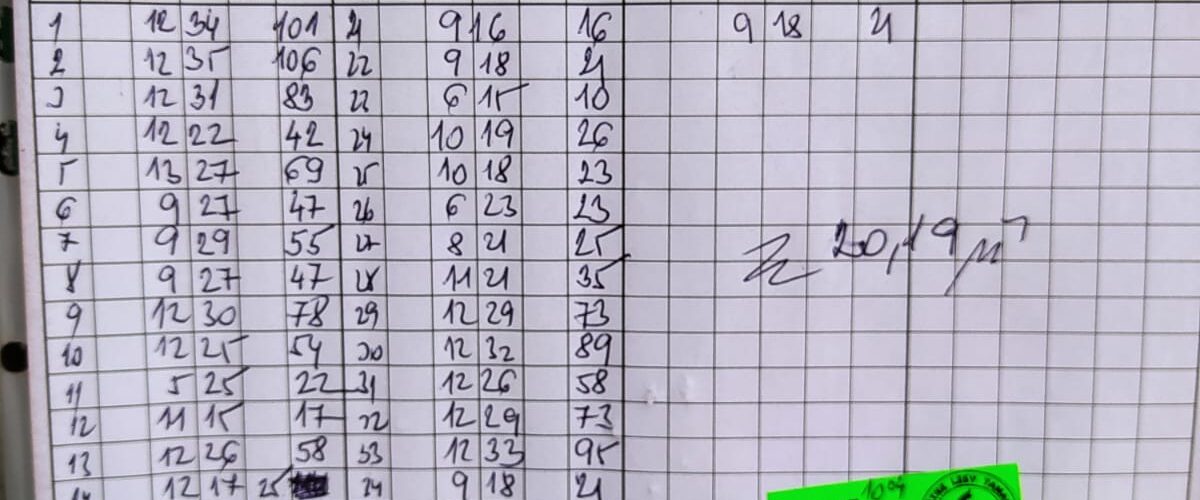 1 12 34 101 21 9 16 16 9 18 21
2 12 35 106 22 9 18 21
3 12 31 83 22 6 15 10
4 12 22 42 24 10 19 26
5 13 27 69 25 10 18 23
6 9 27 47 26 6 23 23
7 9 29 55 27 8 21 25
20,19 m³
8 9 27 47 28 11 21 35
9 12 30 78 29 12 29 73
10 12 25 54 30 12 32 89
11 5 25 22 31 12 26 58
12 11 15 17 32 12 29 73
13 12 26 58 33 12 33 95
14 12 17 25 34 9 18 21